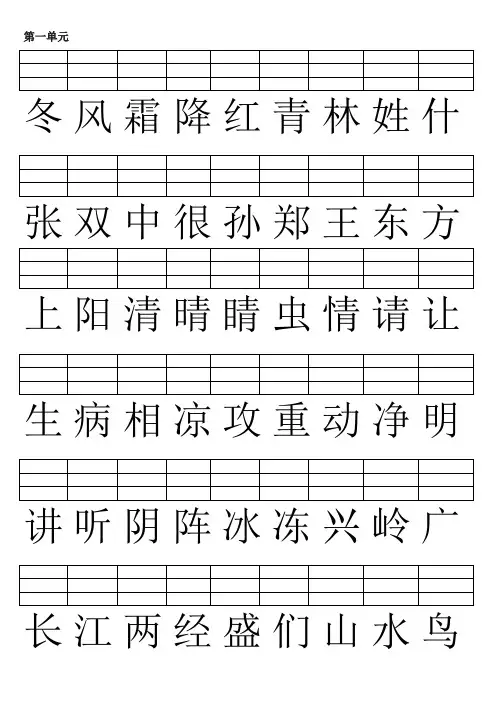 第一单元
冬风霜降红青林姓什
张双中很孙郑王东方
上阳清晴睛虫情请让
生病相凉攻重动净明
讲听阴阵冰冻兴岭广
长江两经盛们山水鸟